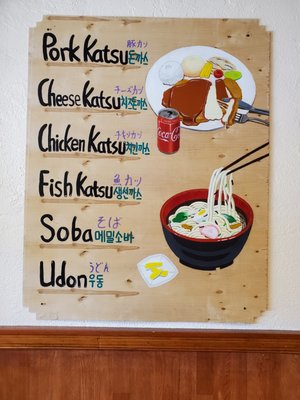 Pork Katsu 豚カツ 돈까스
Cheese Katsu チーズカツ 치즈돈까스
Chicken Katsu チキンカツ 치킨까스
Fish Katsu 魚カツ 생선까스
Soba そば 메밀소바
Udon うどん 우동
Coca-Cola